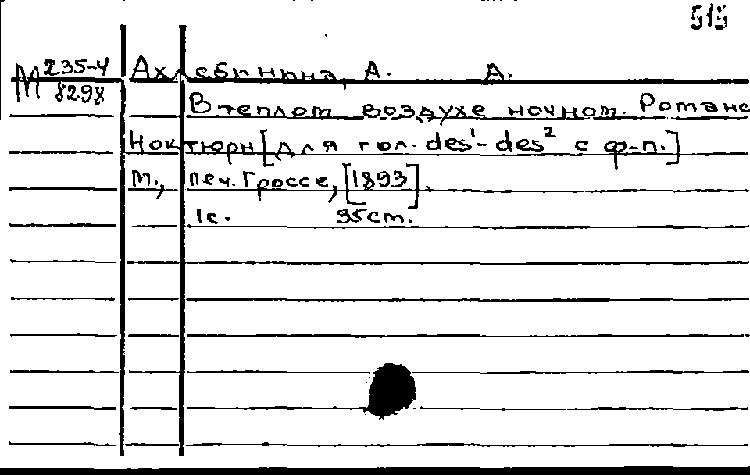 515
М 235-4
8298
А. А.
В теплом воздухе ночном. Романс
Ноктюрн [для гол. des¹-des² с ф-п.]
М., печ. Гроссе, [1893].
1с. 35см.